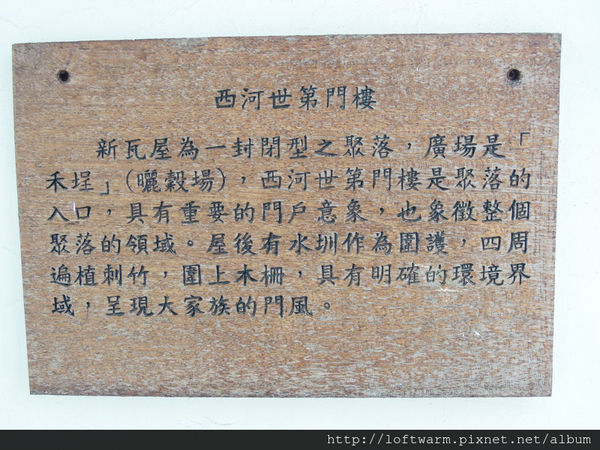 西河世第門樓
新瓦屋為一封閉型之聚落，廣場是「
禾埕」(曬穀場)，西河世第門樓是聚落的
入口，具有重要的門戶意象，也象徵整個
聚落的領域。屋後有水圳作為圍護，四周
遍植刺竹，圍上木柵，具有明確的環境界
域，呈現大家族的門風。
http://loftwarm.pixnet.net/album